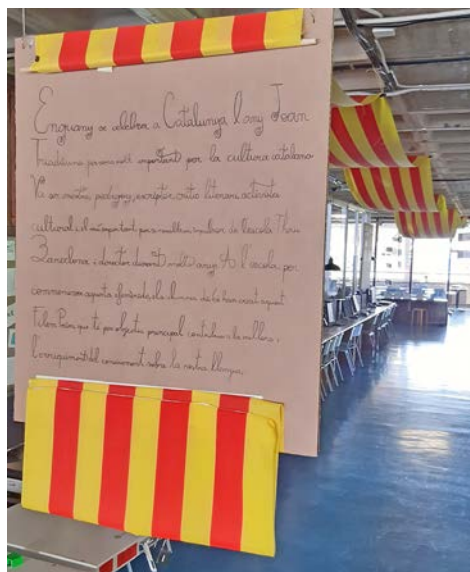 Enguany se celebra a Catalunya l'any Joan
Triadú una persona molt important per la cultura catalana
Va ser mestre, pedagog, escriptor, crític literari, activista
cultural i el més important per a nosaltres impulsor de l'escola Thau
Barcelona i director durant molts anys. A l'escola, per
commemorar aquesta efemèride, els alumnes de han creat aquest
que té per objectiu principal contribuir a la millora i
l'enriquiment del coneixement sobre la nostra llengua.